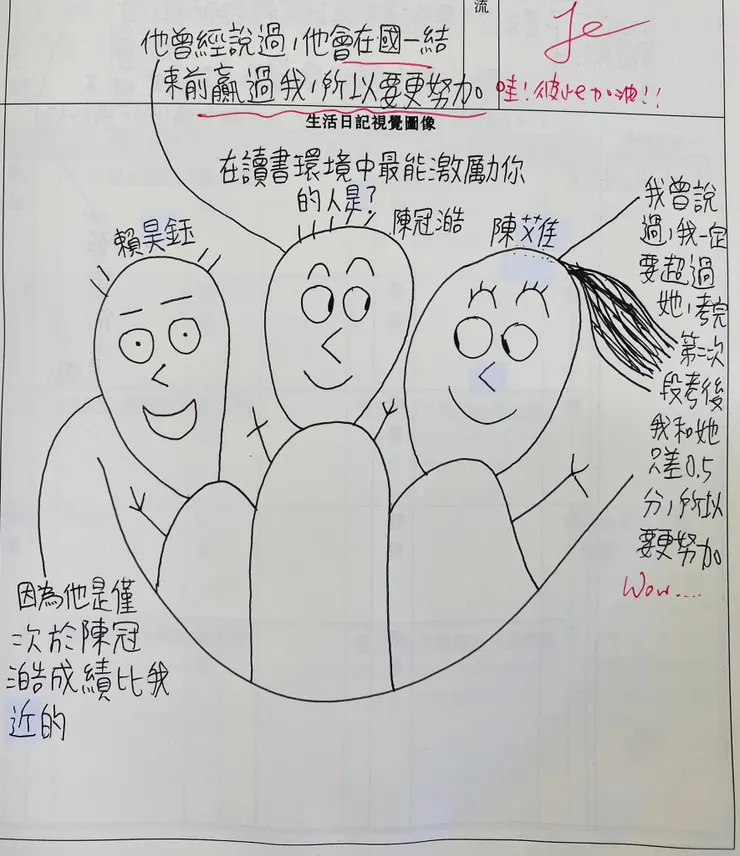 流
他曾經說過，他會在國一結
束前贏過我，所以要更努力。
哇！彼此加油！！
生活日記視覺圖像
在讀書環境中最能激勵你
的人是？
賴昊鈺
陳冠澔
陳艾隹
我曾說
過，我一定
要超過
她，考完
第二次
段考後
我和她
只差0.5
分，所以
要更努加
Wow....
因為他是僅
次於陳冠
澔成績比我
近的